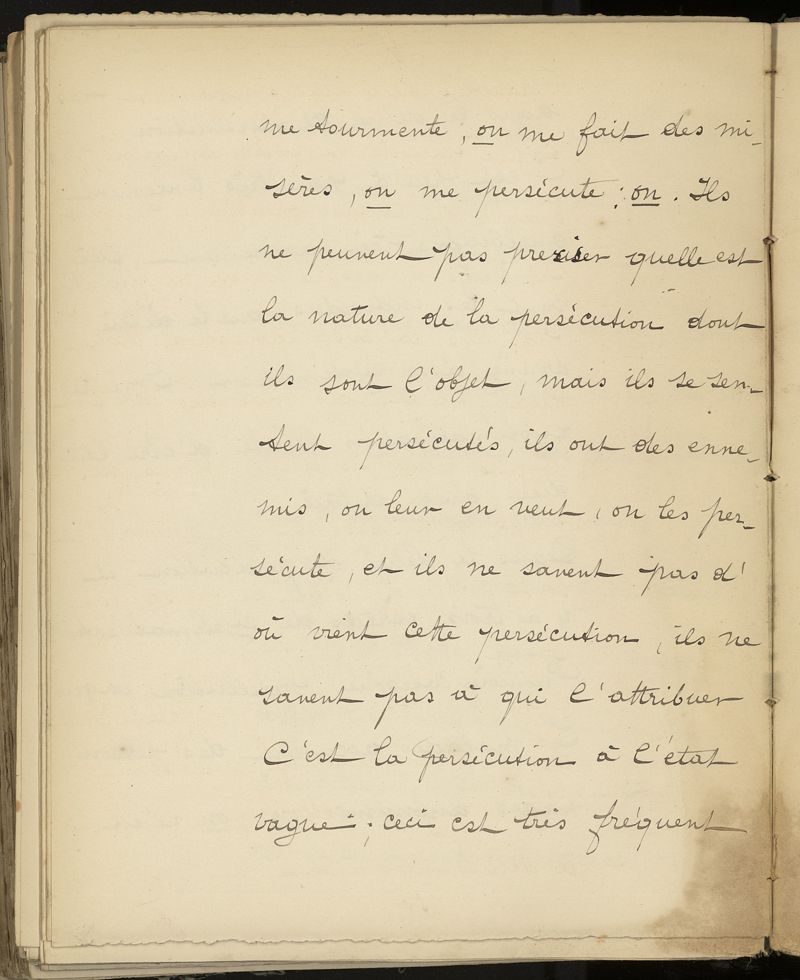 me tourmente, on me fait des mi-
sères, on me persécute ; on. Ils
ne peuvent pas preciser quelle est
la nature de la persécution dont
ils sont l'objet, mais ils se sen-
tent persécutés, ils ont des enne-
mis, on leur en veut, on les per-
sécute, et ils ne savent pas d'
où vient cette persécution, ils ne
savent pas à qui l'attribuer
C'est la persécution à l'état
vague ; ceci est très fréquent